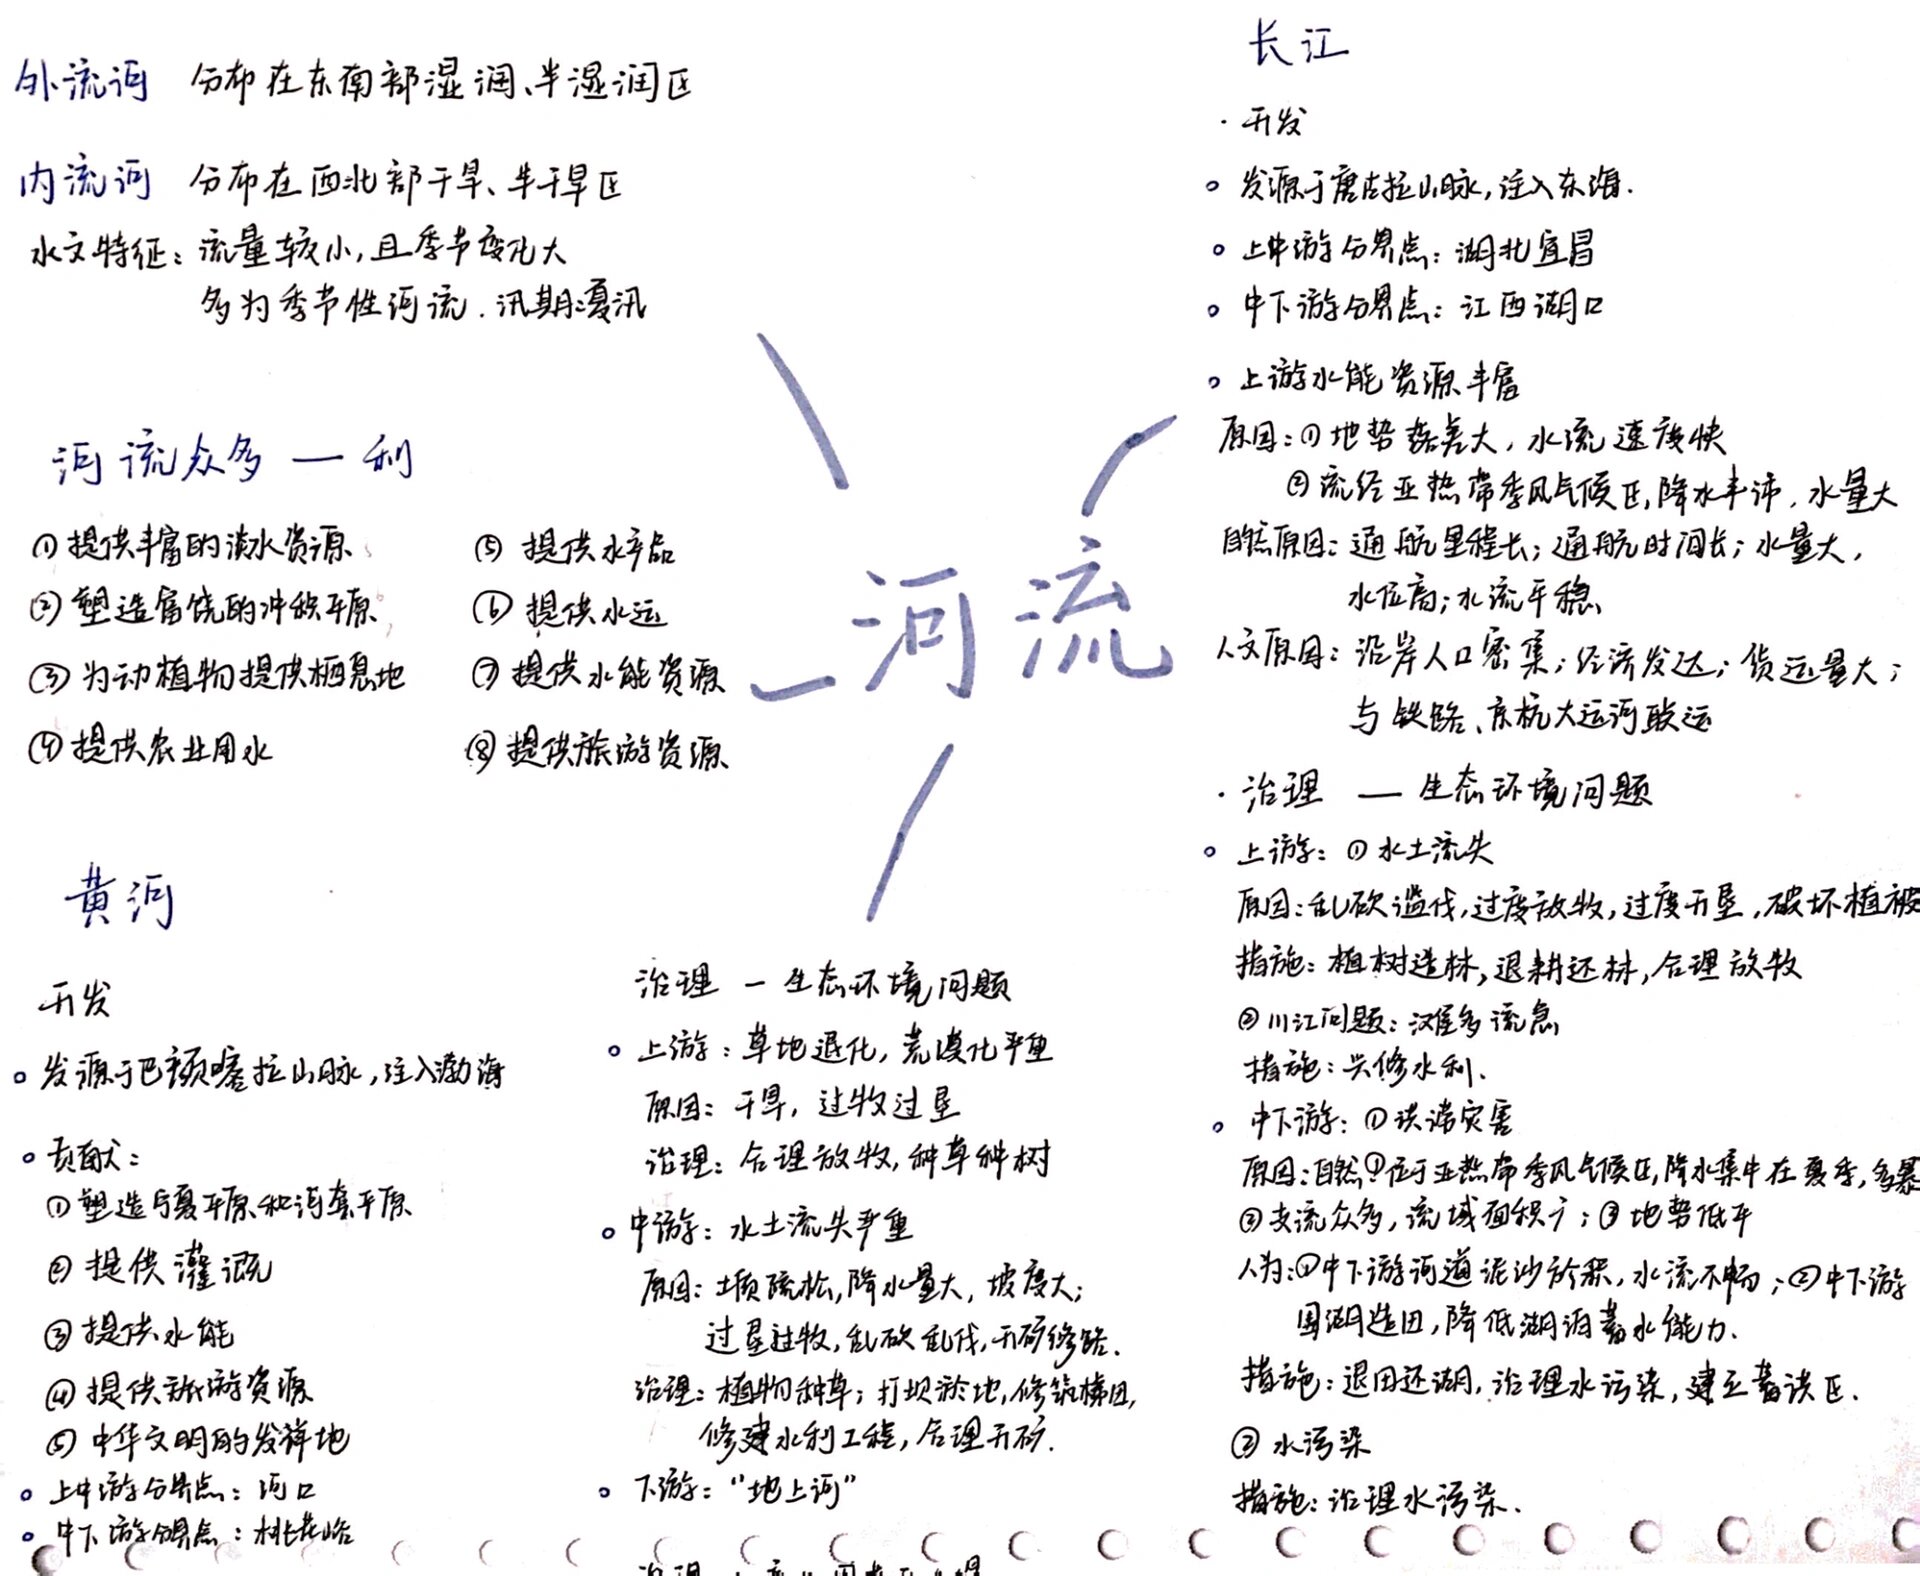 外流河 分布在东南部湿润、半湿润区
内流河 分布在西北部干旱、半干旱区
水文特征：流量较小，且季节变化大
多为季节性河流．汛期：夏汛
河流众多 — 利
①提供丰富的淡水资源
②塑造富饶的冲积平原
③为动植物提供栖息地
④提供农业用水
⑤ 提供水产品
⑥ 提供水运
⑦ 提供水能资源
⑧ 提供旅游资源
河流
黄河
开发
。发源于巴颜喀拉山脉，注入渤海
。贡献：
①塑造宁夏平原和河套平原
②提供灌溉
③提供水能
④提供旅游资源
⑤中华文明的发祥地
。上中游分界点：河口
。中下游分界点：桃花峪
治理 — 生态环境问题
。上游：草地退化，荒漠化严重
原因：干旱，过牧过垦
治理：合理放牧，种草种树
。中游：水土流失严重
原因：土质疏松，降水量大，坡度大；
过垦过牧，乱砍乱伐，开矿修路．
治理：植物种草；打坝淤地，修筑梯田，
修建水利工程，合理开矿．
。下游：“地上河”
长江
·开发
。发源于唐古拉山脉，注入东海．
。上中游分界点：湖北宜昌
。中下游分界点：江西湖口
。上游水能资源丰富
原因：①地势落差大，水流速度快
②流经亚热带季风气候区，降水丰沛．水量大
自然原因：通航里程长；通航时间长；水量大，
水位高；水流平稳
人文原因：沿岸人口密集；经济发达；货运量大；
与铁路、京杭大运河联运
·治理 — 生态环境问题
。上游：①水土流失
原因：乱砍滥伐，过度放牧，过度开垦，破坏植被
措施：植树造林，退耕还林，合理放牧
②川江问题：汉尾多流急
措施：兴修水利．
。中下游：①洪涝灾害
原因：自然①位于亚热带季风气候区，降水集中在夏季，多暴
②支流众多，流域面积广；③地势低平
人为：①中下游河道泥沙淤积，水流不畅；②中下游
围湖造田，降低湖泊蓄水能力．
措施：退田还湖，治理水污染，建立蓄洪区．
②水污染
措施：治理水污染．